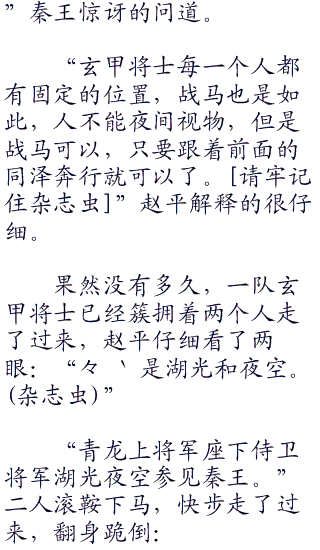 ”秦王惊讶的问道。
“玄甲将士每一个人都
有固定的位置，战马也是如
此，人不能夜间视物，但是
战马可以，只要跟着前面的
同泽奔行就可以了。[请牢记
住杂志虫]”赵平解释的很仔
细。
果然没有多久，一队玄
甲将士已经簇拥着两个人走
了过来，赵平仔细看了两
眼：“々 ｀是湖光和夜空。
(杂志虫)”
“青龙上将军座下侍卫
将军湖光夜空参见秦王。”
二人滚鞍下马，快步走了过
来，翻身跪倒：